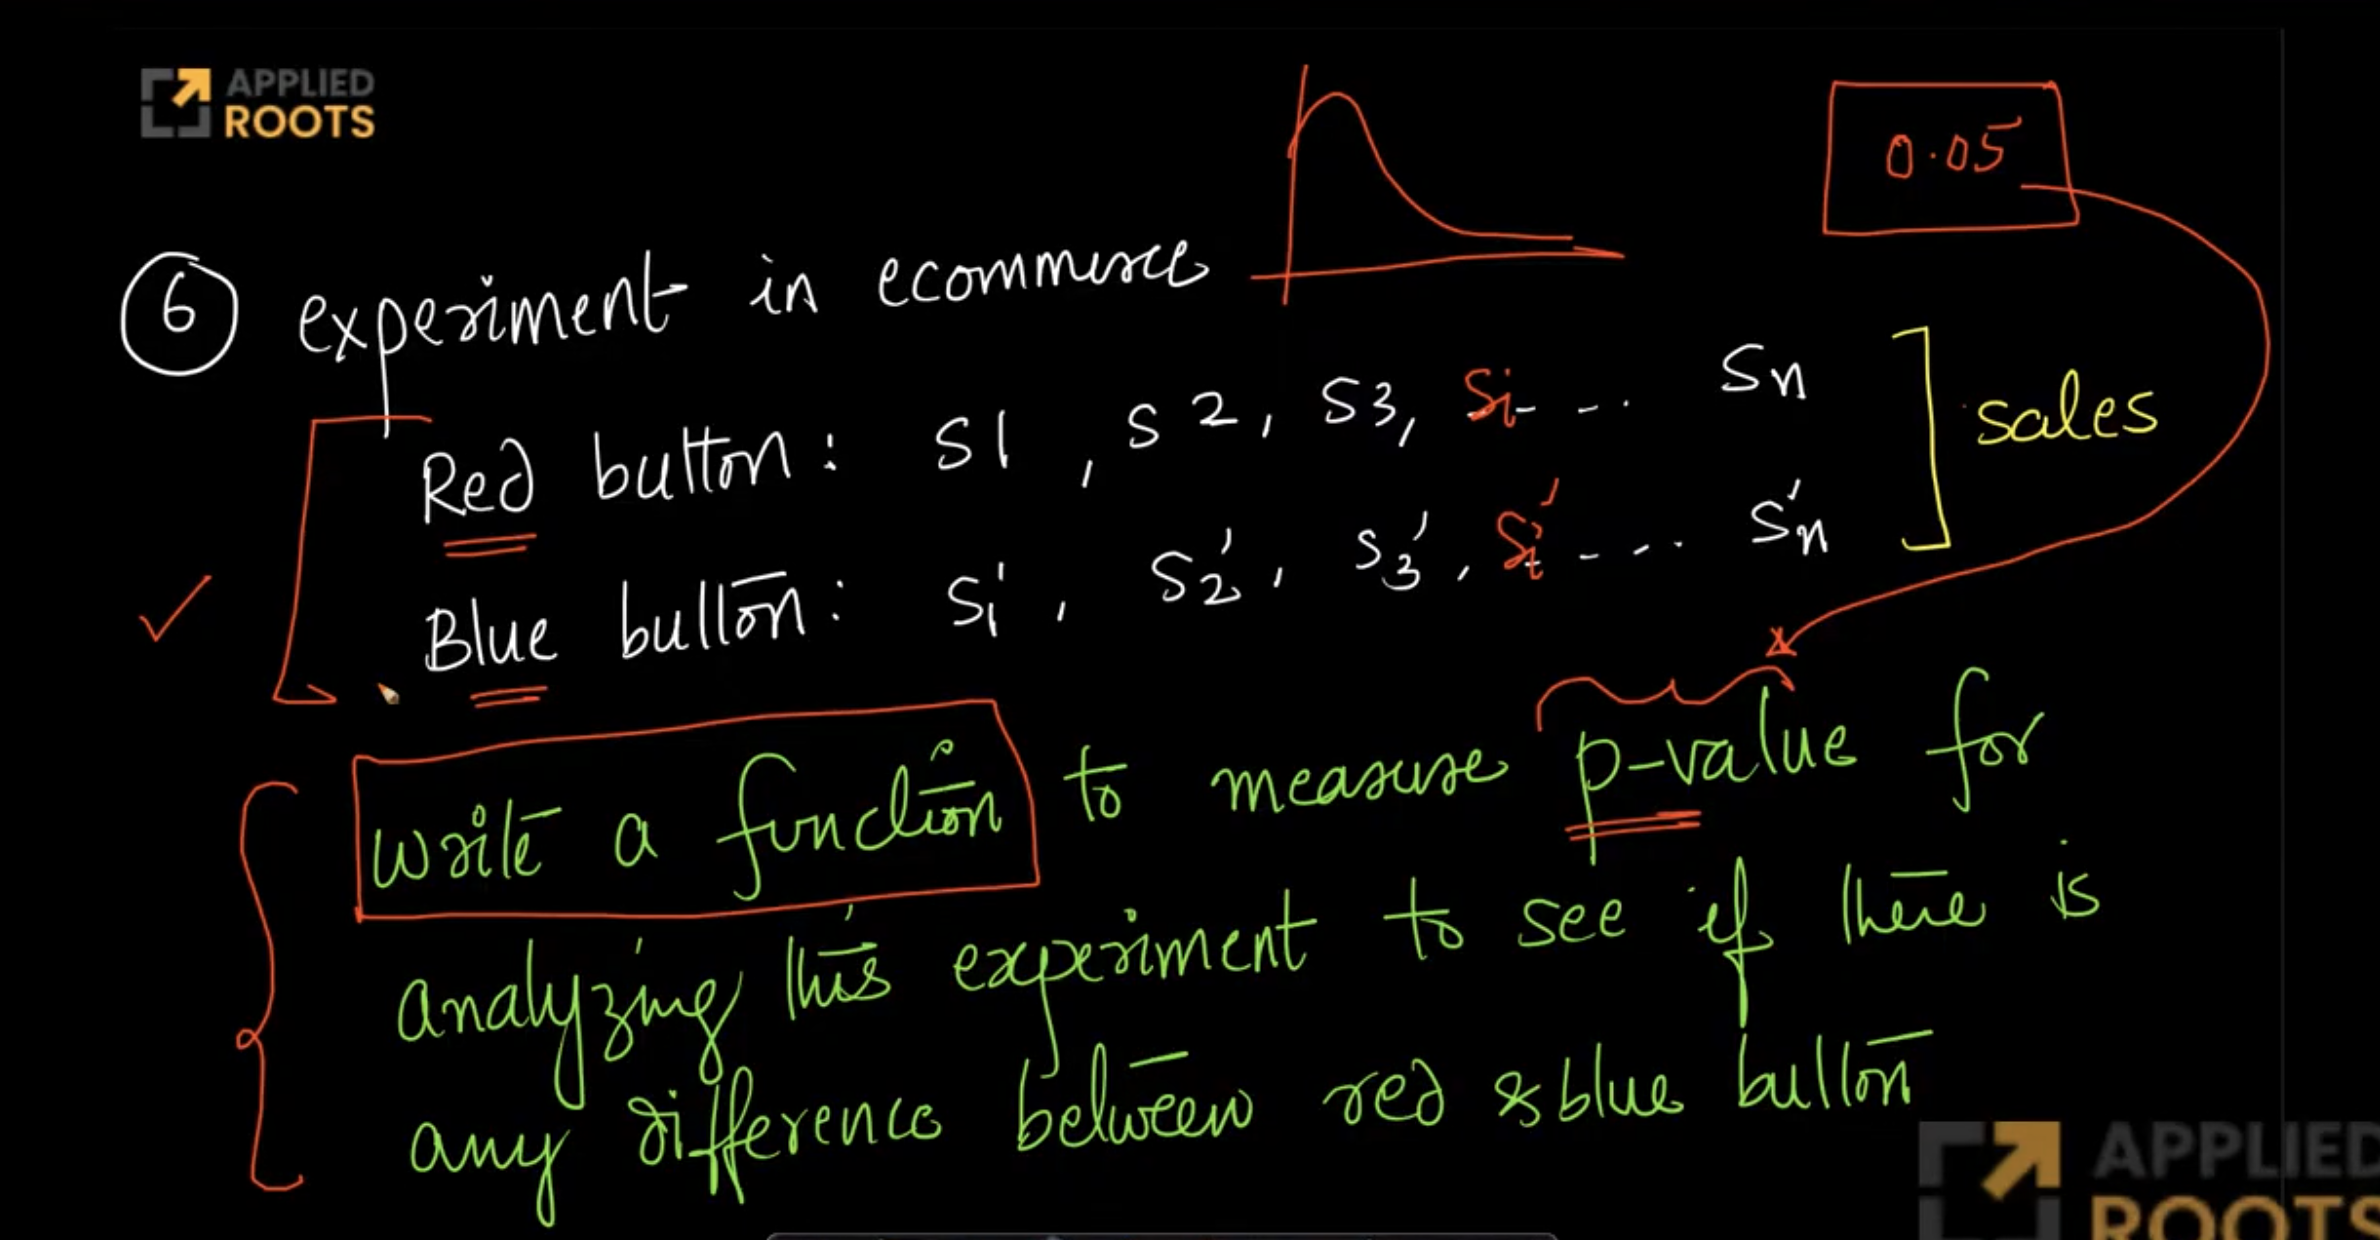 APPLIED
ROOTS
0.05
6 experiment in ecommerce
Red button: S1, S2, S3, Si - - .. Sn
sales
Blue button: S1', S2', S3', Si' - -.. Sn'
write a function to measure p-value for
analyzing this experiment to see if there is
any difference between red & blue button
APPLIED
ROOTS